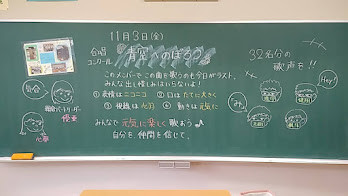 11月3日(金)
合唱
コンクール
青空へのぼろう
このメンバーでこの曲を歌うのも今日がラスト。
みんな出し惜しみはいらないよ!
① 表情はニコニコ ② 口はたてに大きく
③ 視線は ④ 動きは元気に
みんなで元気に楽しく歌おう♪
自分を、仲間を信じて。
32名分の
歌声を!!
Hey!
み
心響